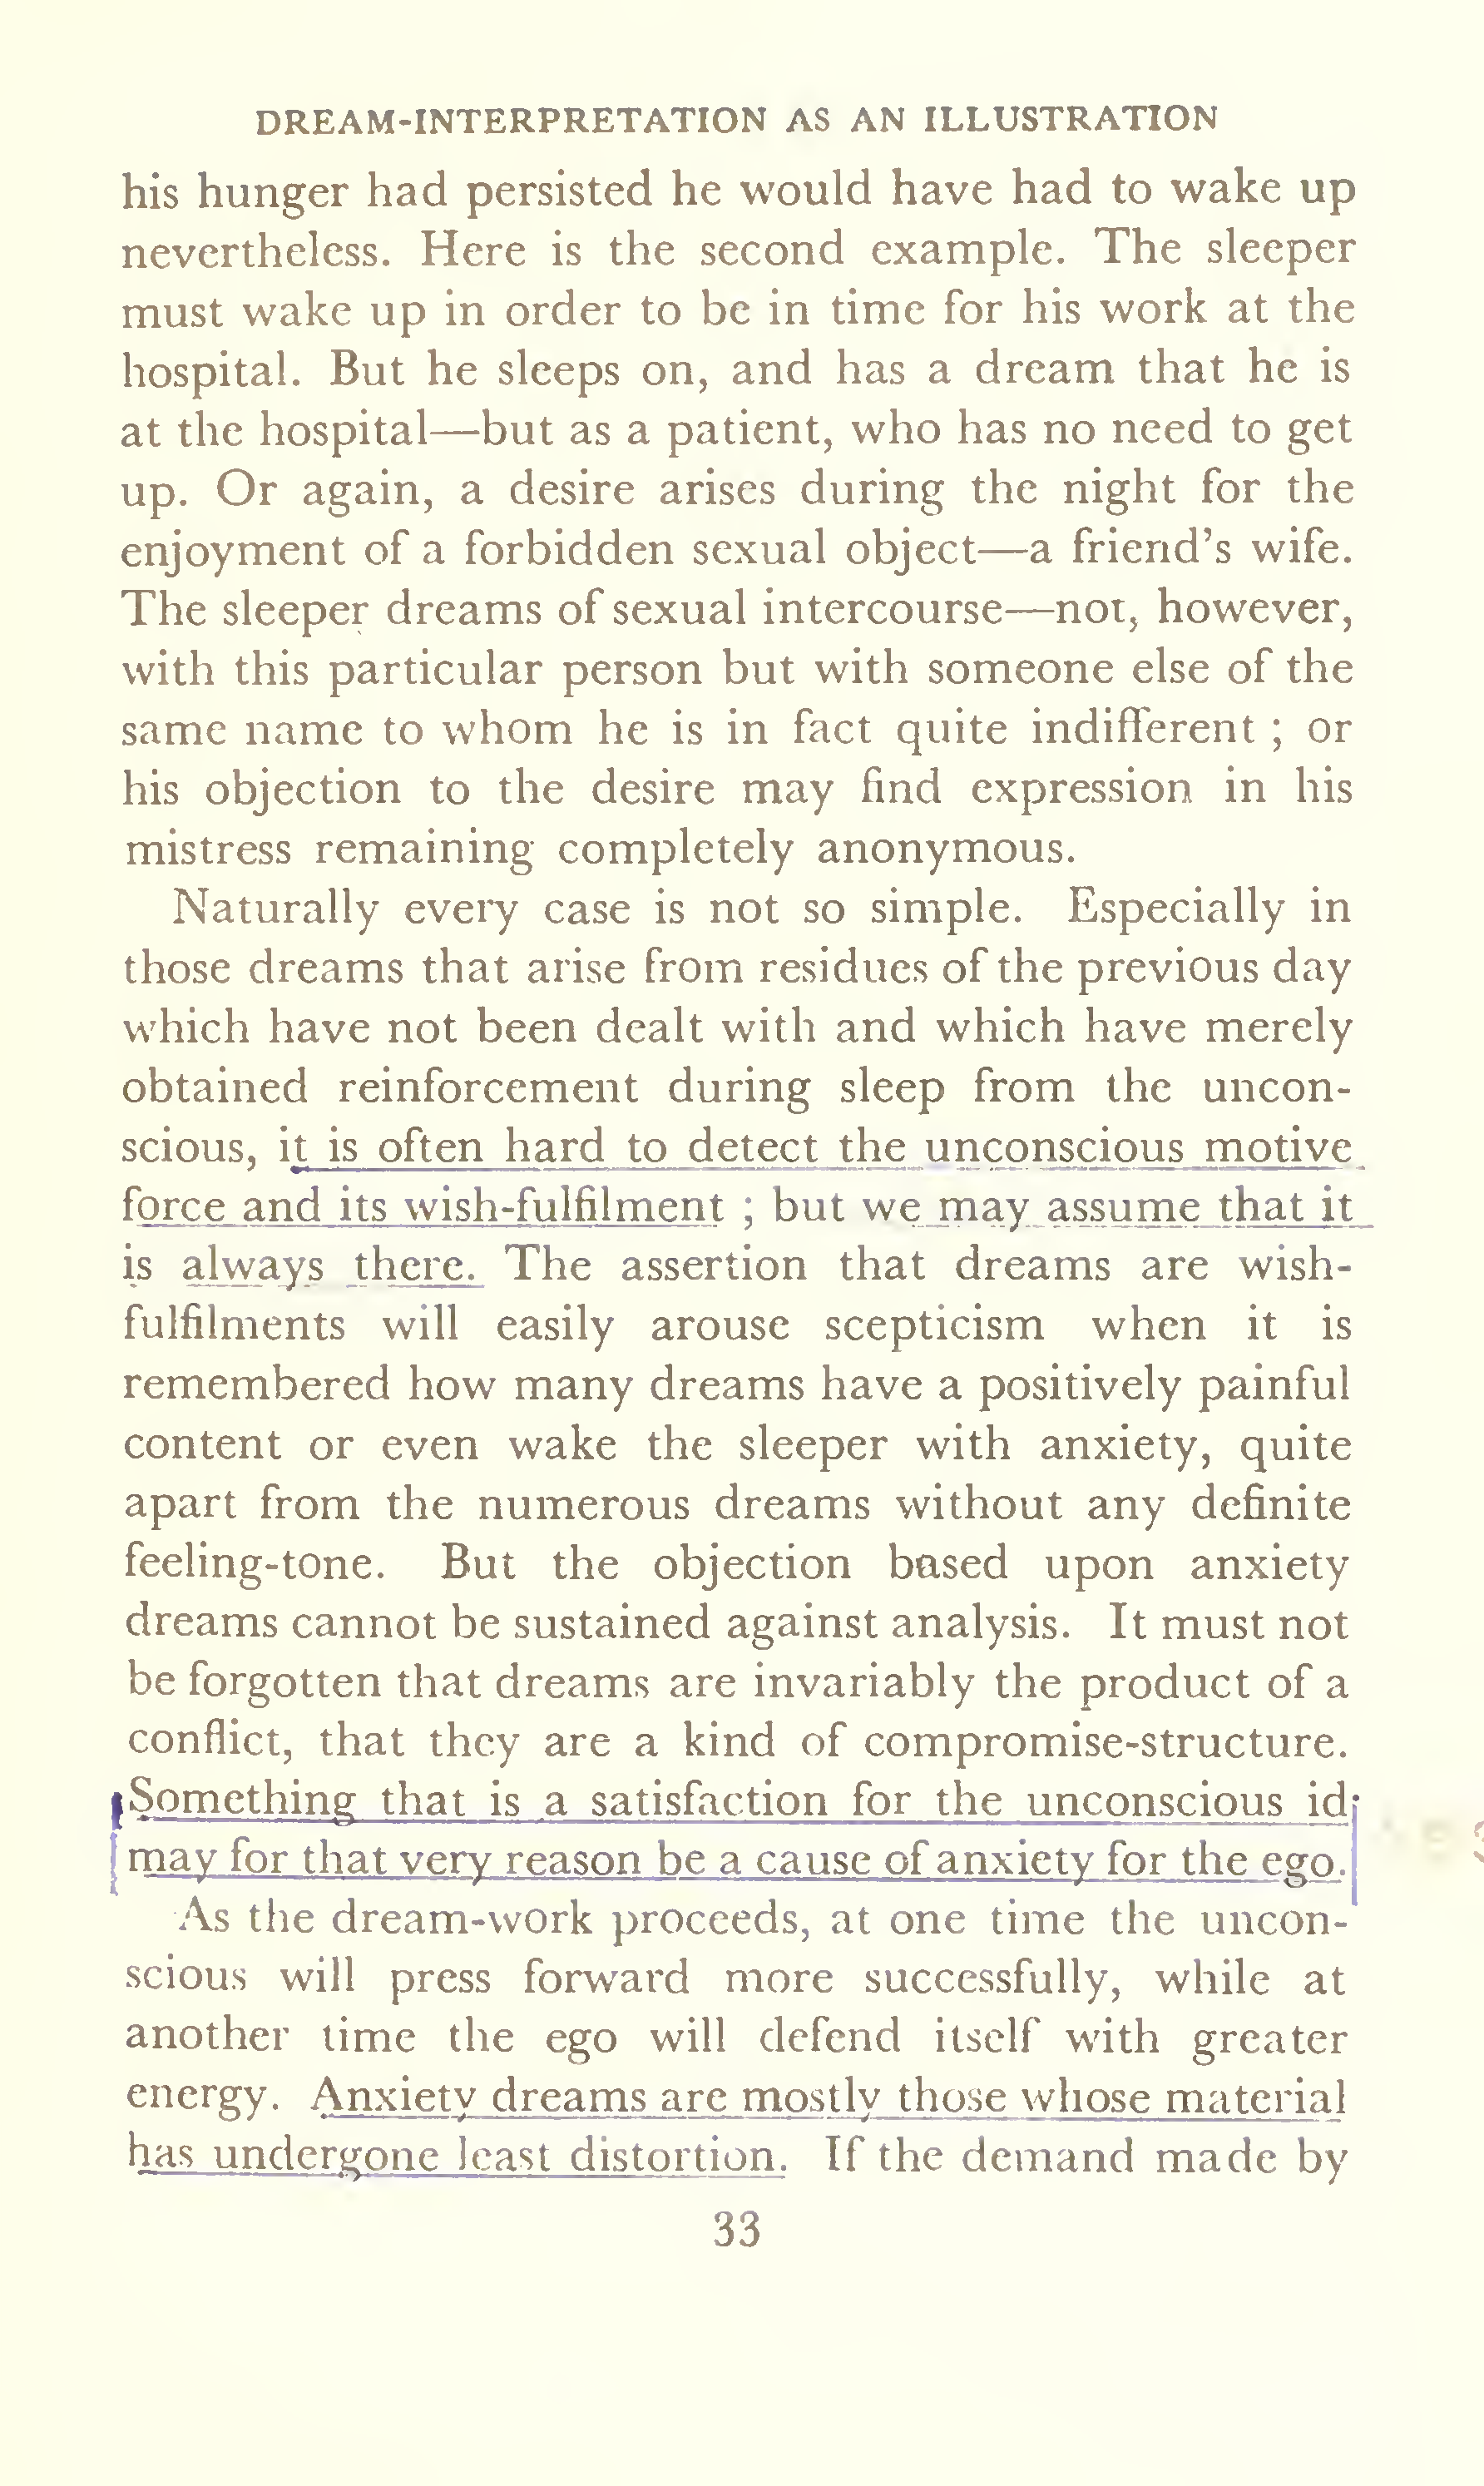 DREAM-INTERPRETATION AS AN ILLUSTRATION
his hunger had persisted he would have had to wake up
nevertheless. Here is the second example. The sleeper
must wake up in order to be in time for his work at the
hospital. But he sleeps on, and has a dream that he is
at the hospital—but as a patient, who has no need to get
up. Or again, a desire arises during the night for the
enjoyment of a forbidden sexual object—a friend's wife.
The sleeper dreams of sexual intercourse—not, however,
with this particular person but with someone else of the
same name to whom he is in fact quite indifferent ; or
his objection to the desire may find expression in his
mistress remaining completely anonymous.
Naturally every case is not so simple. Especially in
those dreams that arise from residues of the previous day
which have not been dealt with and which have merely
obtained reinforcement during sleep from the uncon-
scious, it is often hard to detect the unconscious motive
force and its wish-fulfilment ; but we may assume that it
is always there. The assertion that dreams are wish-
fulfilments will easily arouse scepticism when it is
remembered how many dreams have a positively painful
content or even wake the sleeper with anxiety, quite
apart from the numerous dreams without any definite
feeling-tone. But the objection based upon anxiety
dreams cannot be sustained against analysis. It must not
be forgotten that dreams are invariably the product of a
conflict, that they are a kind of compromise-structure.
Something that is a satisfaction for the unconscious id
may for that very reason be a cause of anxiety for the ego.
As the dream-work proceeds, at one time the uncon-
scious will press forward more successfully, while at
another time the ego will defend itself with greater
energy. Anxiety dreams are mostly those whose material
has undergone least distortion. If the demand made by
33